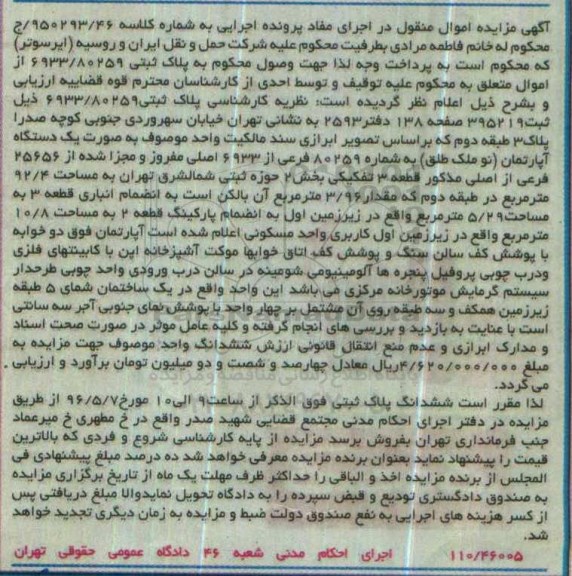 آگهی مزایده اموال منقول در اجرای مفاد پرونده اجرایی به شماره کلاسه ۹۵۰۲۹۳/۴۶/ج
محکوم له خانم فاطمه مرادی بطرفیت محکوم علیه شرکت حمل و نقل ایران و روسیه (ایرسوتر)
که محکوم است به پرداخت وجه لذا جهت وصول محکوم به پلاک ثبتی ۶۹۳۳/۸۰۲۵۹ از
اموال متعلق به محکوم علیه توقیف و توسط احدی از کارشناسان محترم قوه قضاییه ارزیابی
و بشرح ذیل اعلام نظر گردیده است: نظریه کارشناسی پلاک ثبتی۶۹۳۳/۸۰۲۵۹ ذیل
ثبت۳۹۵۲۱۹ صفحه ۱۳۸ دفتر۲۵۹۳ به نشانی تهران خیابان سهروردی جنوبی کوچه صدرا
پلاک۳ طبقه دوم که براساس تصویر ابرازی سند مالکیت واحد موصوف به صورت یک دستگاه
آپارتمان (نو ملک طلق) به شماره ۸۰۲۵۹ فرعی از ۶۹۳۳ اصلی مفروز و مجزا شده از ۲۵۶۵۶
فرعی از اصلی مذکور قطعه ۳ تفکیکی بخش۲ حوزه ثبتی شمالشرق تهران به مساحت ۹۲/۴
مترمربع در طبقه دوم که مقدار۳/۹۶ مترمربع آن بالکن است به انضمام انباری قطعه ۳ به
مساحت۵/۲۹ مترمربع واقع در زیرزمین اول به انضمام پارکینگ قطعه ۲ به مساحت ۱۰/۸
مترمربع واقع در زیرزمین اول کاربری واحد مسکونی اعلام شده است آپارتمان فوق دو خوابه
با پوشش کف سالن سنگ و پوشش کف اتاق خوابها موکت آشپزخانه اپن با کابینتهای فلزی
ودرب چوبی پروفیل پنجره ها آلومینیومی شومینه در سالن درب ورودی واحد چوبی طرحدار
سیستم گرمایش موتورخانه مرکزی می باشد این واحد واقع در یک ساختمان شمای ۵ طبقه
زیرزمین همکف و سه طبقه روی آن مشتمل بر چهار واحد با پوشش نمای جنوبی آجر سه سانتی
است با عنایت به بازدید و بررسی های انجام گرفته و کلیه عامل موثر در صورت صحت اسناد
و مدارک ابرازی و عدم منع انتقال قانونی ارزش ششدانگ واحد موصوف جهت مزایده به
مبلغ ۴/۶۲۰/۰۰۰/۰۰۰ریال معادل چهارصد و شصت و دو میلیون تومان برآورد و ارزیابی
می گردد.
لذا مقرر است ششدانگ پلاک ثبتی فوق الذکر از ساعت۹ الی۱۰ مورخ۹۶/۵/۷ از طریق
مزایده در دفتر اجرای احکام مدنی مجتمع قضایی شهید صدر واقع در خ مطهری خ میرعماد
جنب فرمانداری تهران بفروش برسد مزایده از پایه کارشناسی شروع و فردی که بالاترین
قیمت را پیشنهاد نماید بعنوان برنده مزایده معرفی خواهد شد ده درصد مبلغ پیشنهادی فی
المجلس از برنده مزایده اخذ و الباقی را حداکثر ظرف مهلت یک ماه از تاریخ برگزاری مزایده
به صندوق دادگستری تودیع و قبض سپرده را به دادگاه تحویل نمایدوالا مبلغ دریافتی پس
از کسر هزینه های اجرایی به نفع صندوق دولت ضبط و مزایده به زمان دیگری تجدید خواهد
شد.
۱۱۰/۴۶۰۰۵ اجرای احکام مدنی شعبه ۴۶ دادگاه عمومی حقوقی تهران